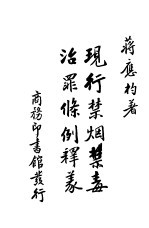 蔣應杓著
現行禁烟禁毒
治罪條例釋義
商務印書館發行